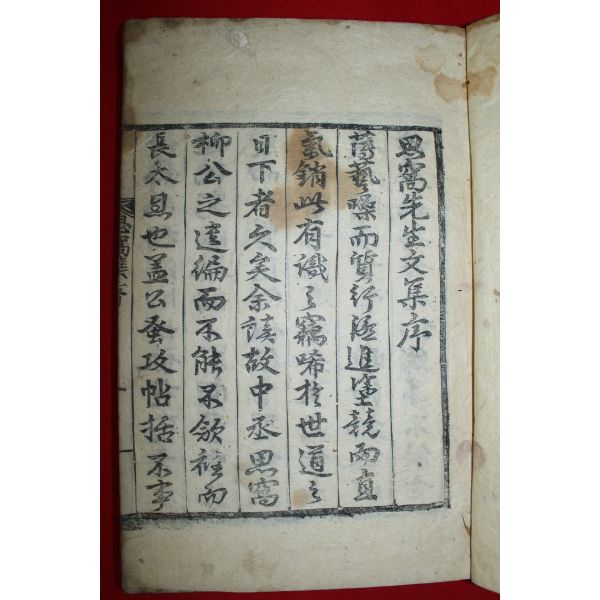 思窩先生文集序
薄藝噪而質行隱進塗競而直
氣銷此有識之竊唏於世道之
日下者久矣余讀故中丞思窩
柳公之遺編而不能不欽衽而
長太息也盖公蚤攻帖括不事
思窩集序